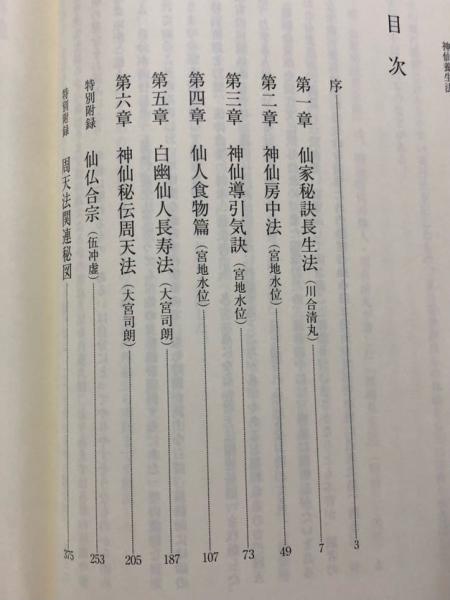 神仙養生法
目次
序 3
第一章 仙家秘訣長生法(川合清丸) 7
第二章 神仙房中法(宮地水位) 49
第三章 神仙導引気訣(宮地水位) 73
第四章 仙人食物篇(宮地水位) 107
第五章 白幽仙人長寿法(大宮司朗) 187
第六章 神仙秘伝周天法(大宮司朗) 205
特別附録 仙仏合宗(伍冲虚) 253
特別附録 周天法関連秘図 375